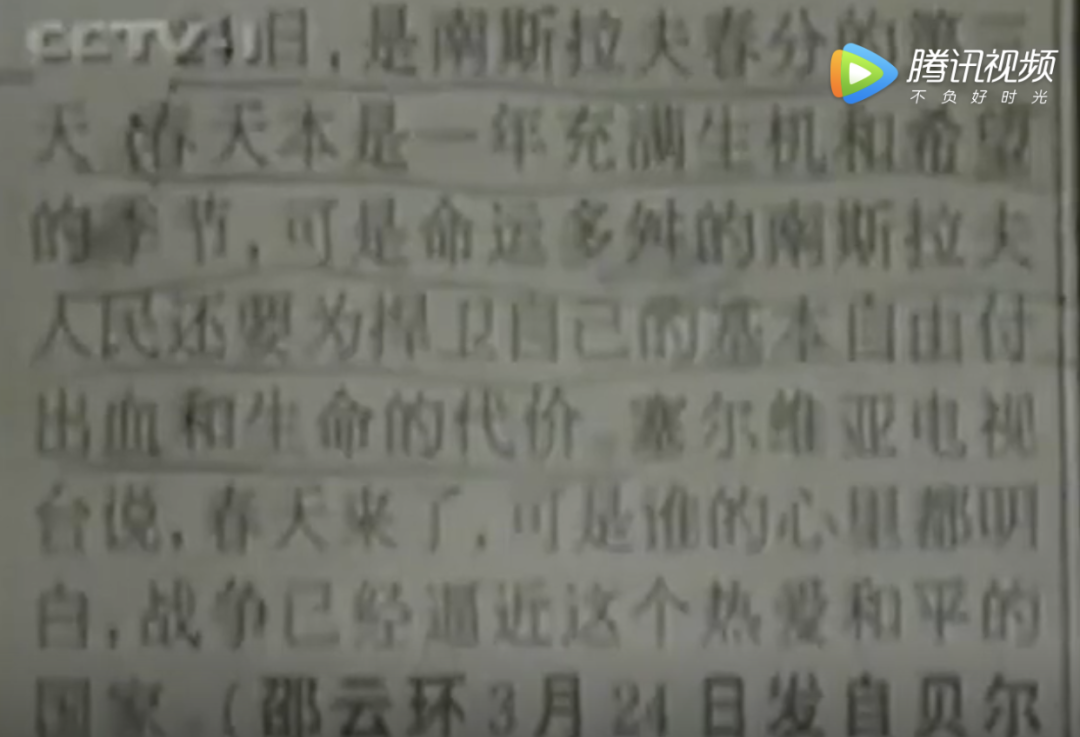 CCTV-1
腾讯视频
不负好时光
24日,是南斯拉夫春分的第三
天,春天本是一年充满生机和希望
的季节,可是命运多舛的南斯拉夫
人民还要为捍卫自己的基本自由付
出血和生命的代价。塞尔维亚电视
台说,春天来了,可是谁的心里都明
白,战争已经逼近这个热爱和平的
国家。(邵云环3月24日发自贝尔